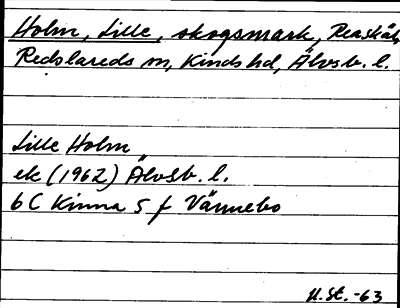 Holm, Lille, skogsmark, Reaskäl,
Redslareds sn, Kinds hd, Älvsb. l.
Lille Holm
ek (1962) Älvsb. l.
6 C Kinna 5 f Vännebo
U. St. -63